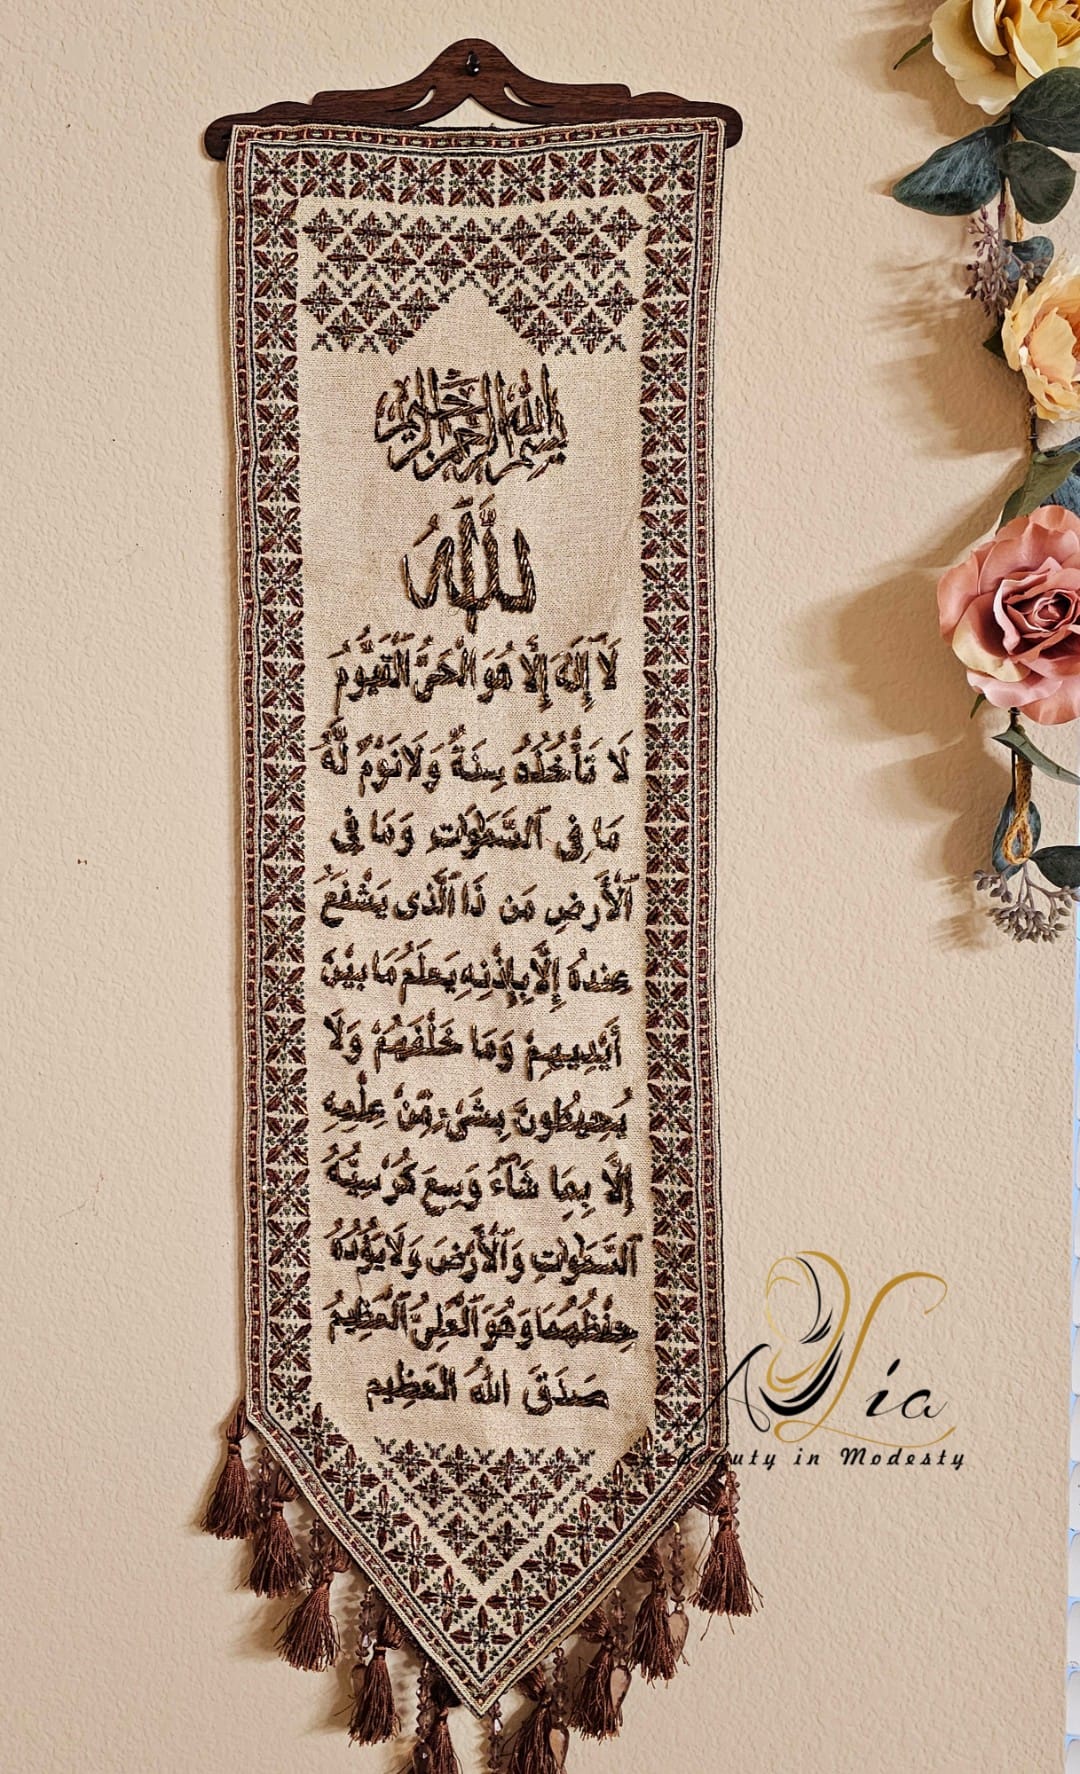 بسم الله الرحمن الرحيم
الله
لَآ إِلَٰهَ إِلَّا هُوَ الْحَىُّ الْقَيُّومُ
لَا تَأْخُذُهُ سِنَةٌ وَلَا نَوْمٌ لَّهُ
مَا فِى ٱلسَّمَٰوَٰتِ وَمَا فِى
ٱلْأَرْضِ مَن ذَا ٱلَّذِى يَشْفَعُ
عِندَهُ إِلَّا بِإِذْنِهِ يَعْلَمُ مَا بَيْنَ
أَيْدِيهِمْ وَمَا خَلْفَهُمْ وَلَا
يُحِيطُونَ بِشَىْءٍ مِّنْ عِلْمِهِ
إِلَّا بِمَا شَآءَ وَسِعَ كُرْسِيُّهُ
ٱلسَّمَٰوَٰتِ وَٱلْأَرْضَ وَلَا يَؤُدُهُ
حِفْظُهُمَا وَهُوَ ٱلْعَلِىُّ ٱلْعَظِيمُ
صَدَقَ اللهُ العَظِيم
Alia
Beauty in Modesty